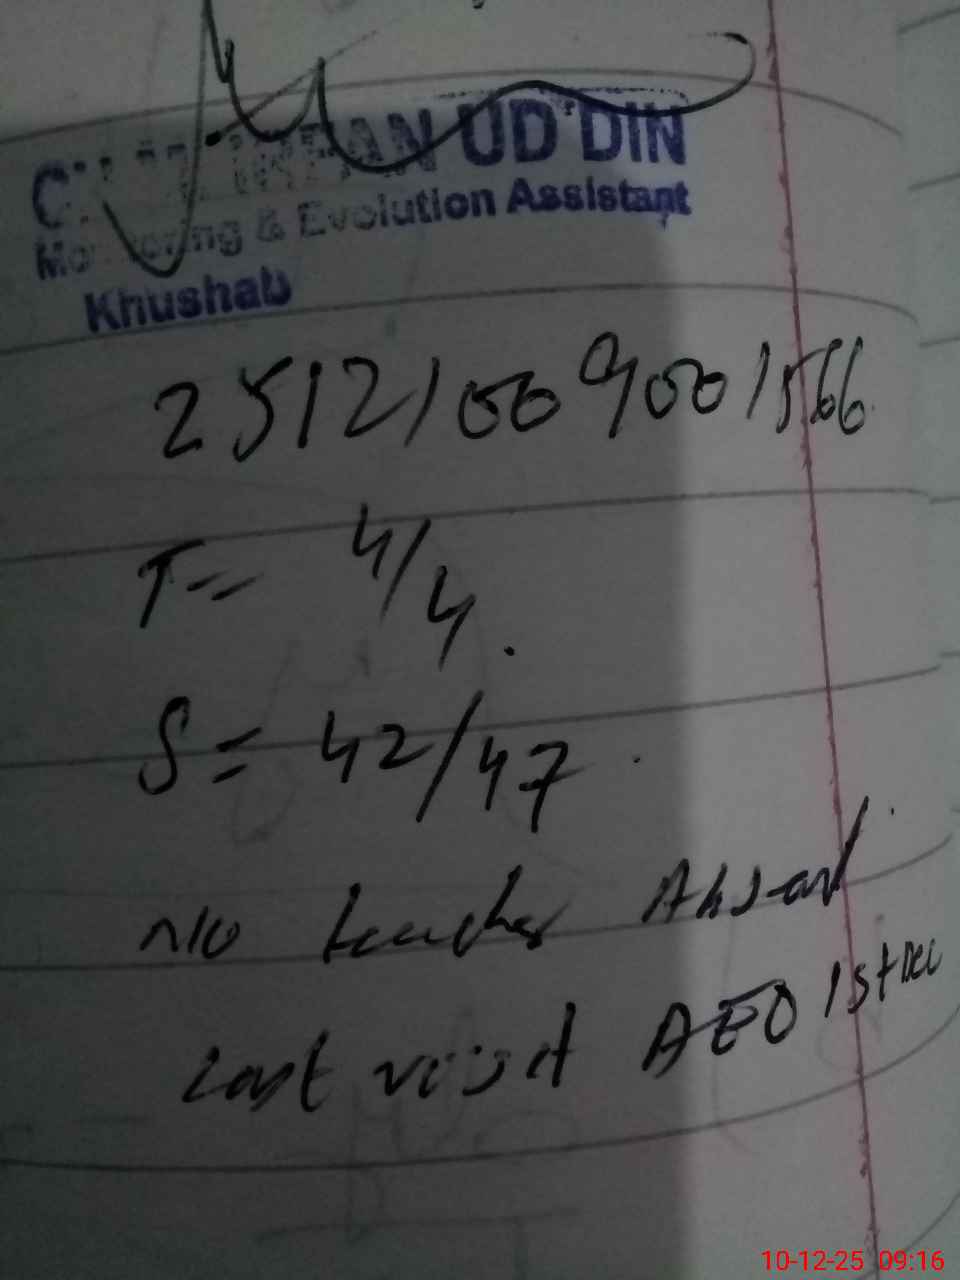 IRFAN UD DIN
Monitoring & Evolution Assistant
Khushab
25121009001566
T= 4/4.
S= 42/47.
No teacher Absent
Last visit AEO 1st Dec
10-12-25 09:16